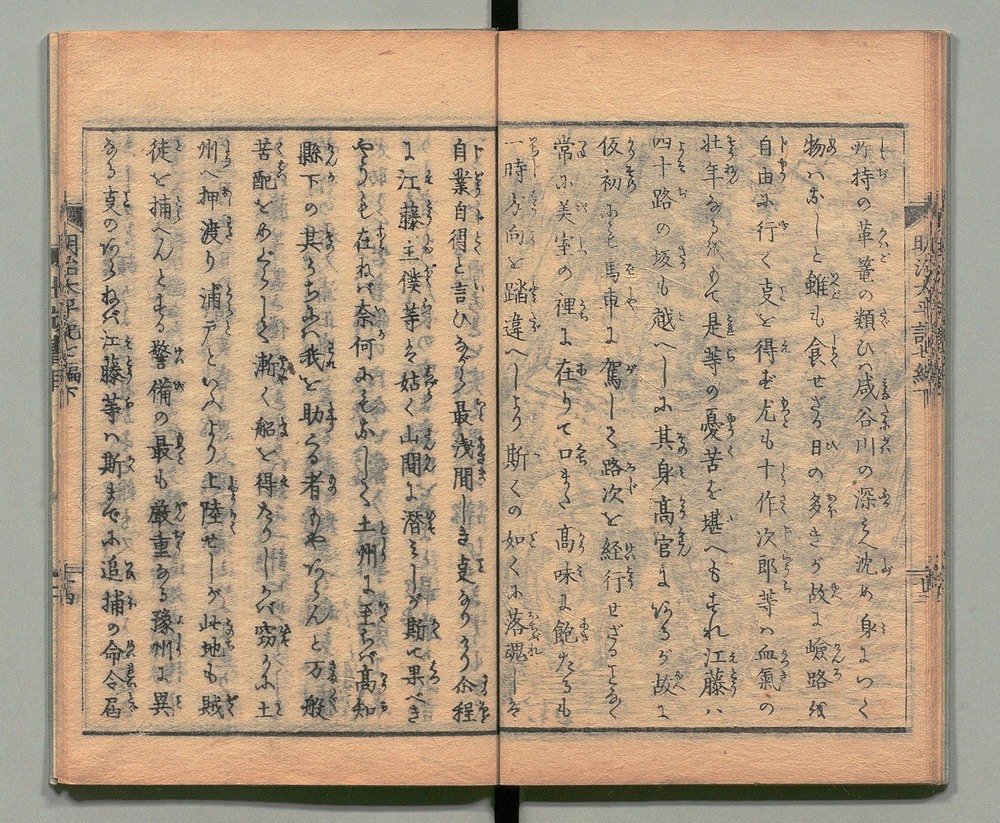 所持の革篭の類ひハ咸谷川の深ミへ沈め身につく
物ハなしと雖も食せざる日の多きが故に嶮路を
自由に行く支を得ず尤も十作次郎等ハ血氣の
壮年なるをもて是等の憂苦を堪へもすれ江藤ハ
四十路の坂も越へしに其身高官にりるが故に
仮初にも馬車に駕して路次を経行せざることなく
常に美室の裡に在りて口また高味に飽たるも
一時方向を踏違へしより斯くの如くに落魄しを
自業自得と言ひながら最浅間しき支なりけり尒程
に江藤主僕等を姑く山間に潜ミしが斯て果べき
やうにも在ねバ奈何にもなしく土州に至らバ高知
縣下の其うちにハ我を助くる者もやあらんと万般
苦配をめぐらしく漸く船を得たりしかバ窃かに土
州へ押渡り浦戸といへより上陸せしが此地も賊
徒を捕へんとする警備の最も厳重なる豫州に異
なる支のあらねバ江藤等ハ斯までに追捕の命令届
明治太平記七編下
明治太平記七編下